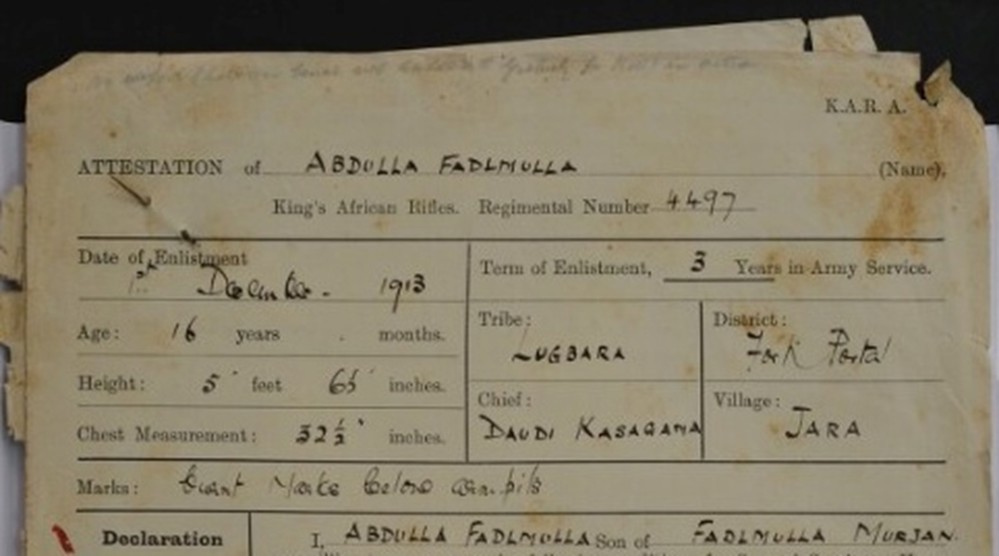 K.A.R. A.
ATTESTATION of ABDULLA FADLMULLA (Name).
King's African Rifles. Regimental Number 4497
Date of Enlistment
1st December. 1913
Term of Enlistment, 3 Years in Army Service.
Age: 16 years . months.
Tribe:
LUGBARA
District:
Fort Portal
Height: 5 feet inches.
Chief:
DAUDI KASAGAMA
Village:
JARA
Chest Measurement: 32 1/2 inches.
Marks: Burnt Marks below arm pits
Declaration
I, ABDULLA FADLMULLA Son of FADLMULLA MURJAN.